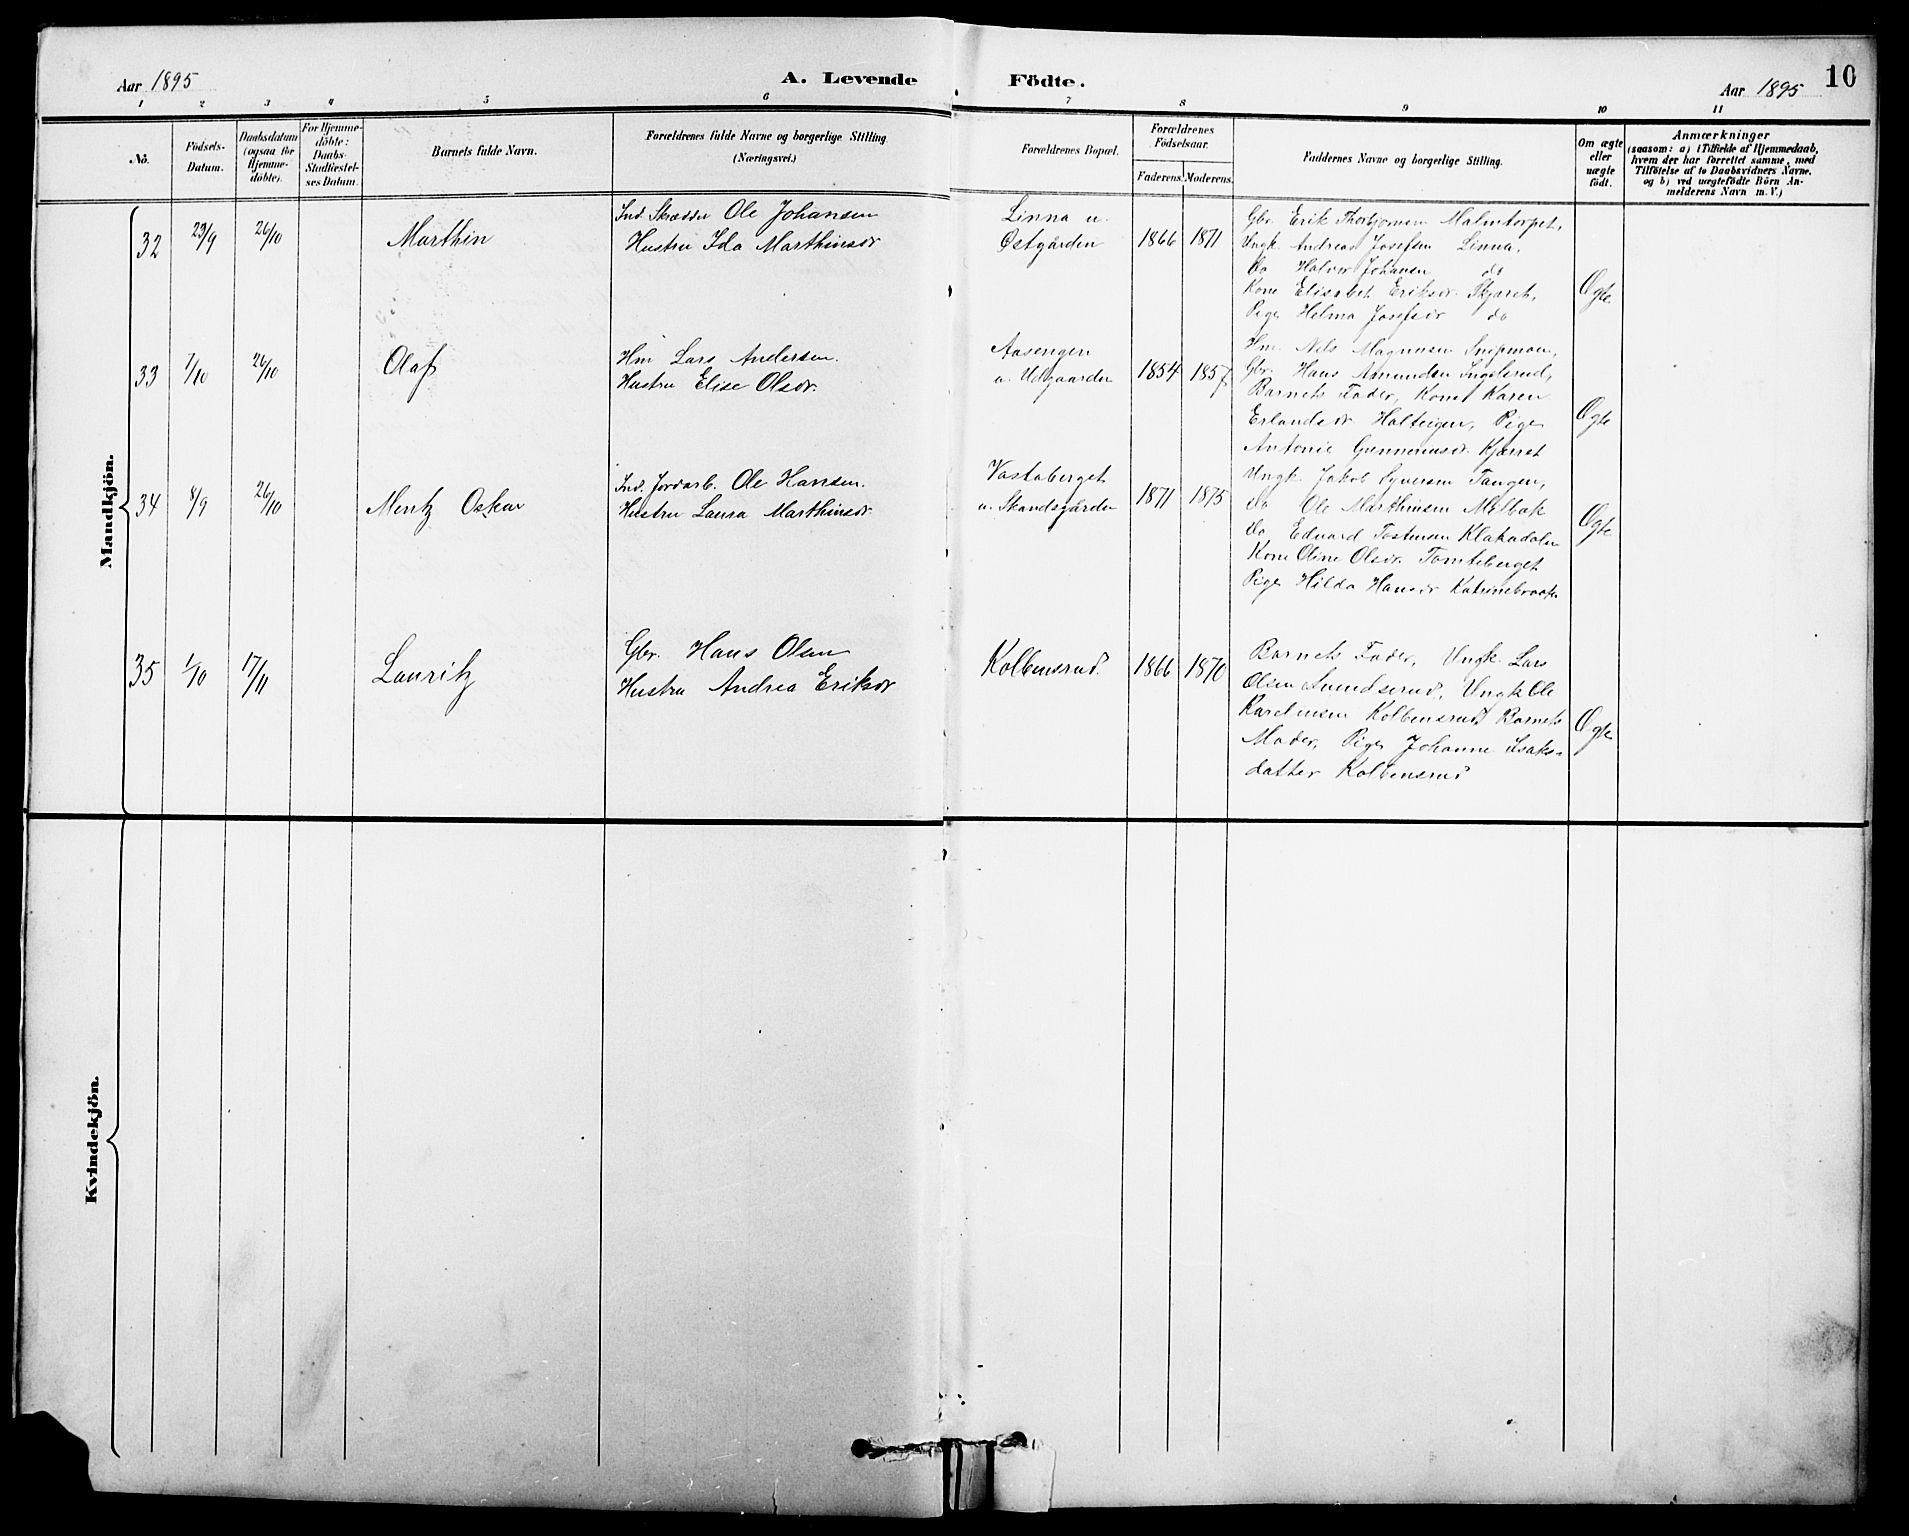 Aar 1895
A. Levende Födte.
Aar 1895
10
1 2 3 4 5 6 7 8 9 10 11
No.
Födsels-
Datum.
Daabsdatum
(ogsaa for
Hjemme-
döbte).
For Hjemme-
döbte:
Daabs-
Stadfæstel-
ses Datum.
Barnets fulde Navn.
Forældrenes fulde Navne og borgerlige Stilling
(Næringsvei.)
Forældrenes Bopæl.
Forældrenes
Födselsaar.
Faderens. Moderens.
Faddernes Navne og borgerlige Stilling.
Om ægte
eller
uægte
födt.
Anmærkninger
(saasom: a) i Tilfælde af Hjemmedaab,
hvem der har forrettet samme, med
Tilföielse af to Daabsvidners Navne.
og b) ved uægtefödte Börn An-
melderens Navn m. V.)
Mandkjön.
32 23/9 26/10 Marthin
Ind. Skrædder Ole Johansen
Hustru Ida Marthinsdr
Linna u.
Østgården
1866 1871
Gbr. Erik Thorbjørnsen Malmtorpet,
Ungk. Andreas Josefsen Linna,
Do Halvor Johansen do
Kone Elisabet Eriksdr. Skjæret,
Pige Helma Josefsdr do
Ægte
33 7/10 26/10 Olaf
Hm Lars Andersen.
Hustru Elise Olsdr.
Aasengen
u. Udgaarden
1854 1857
Hm. Nils Magnusen Snipmoen,
Gbr. Hans Amundsen Ingelsrud,
Barnets Fader, Kone Karen
Erlandsdr Halteigen, Pige
Antonie Gunneriusdr. Kjærret
Ægte
34 8/9 26/10 Mentz Oskar
Ind. Jordarb. Ole Hansen.
Hustru Laura Marthinsdr
Vestaberget
u. Skandsgården
1871 1875
Ungk. Jakob Syversen Tangen,
Do Ole Marthinsen Melbak
Do Edvard Tostensen Klakadalen
Kone Oline Olsdr. Tomteberget
Pige Hilda Hansdr Katrinebraaten
Ægte
35 1/10 17/11 Lauritz
Gbr. Hans Olsen
Hustru Andrea Eriksdr
Kolbensrud.
1866 1870
Barnets Fader, Ungk. Lars
Olsen Svendserud, Ungk Ole
Karelinsen Kolbensrud Barnets
Moder, Pige Johanne Isaks-
datter Kolbensrud
Ægte
Kvindekjön.